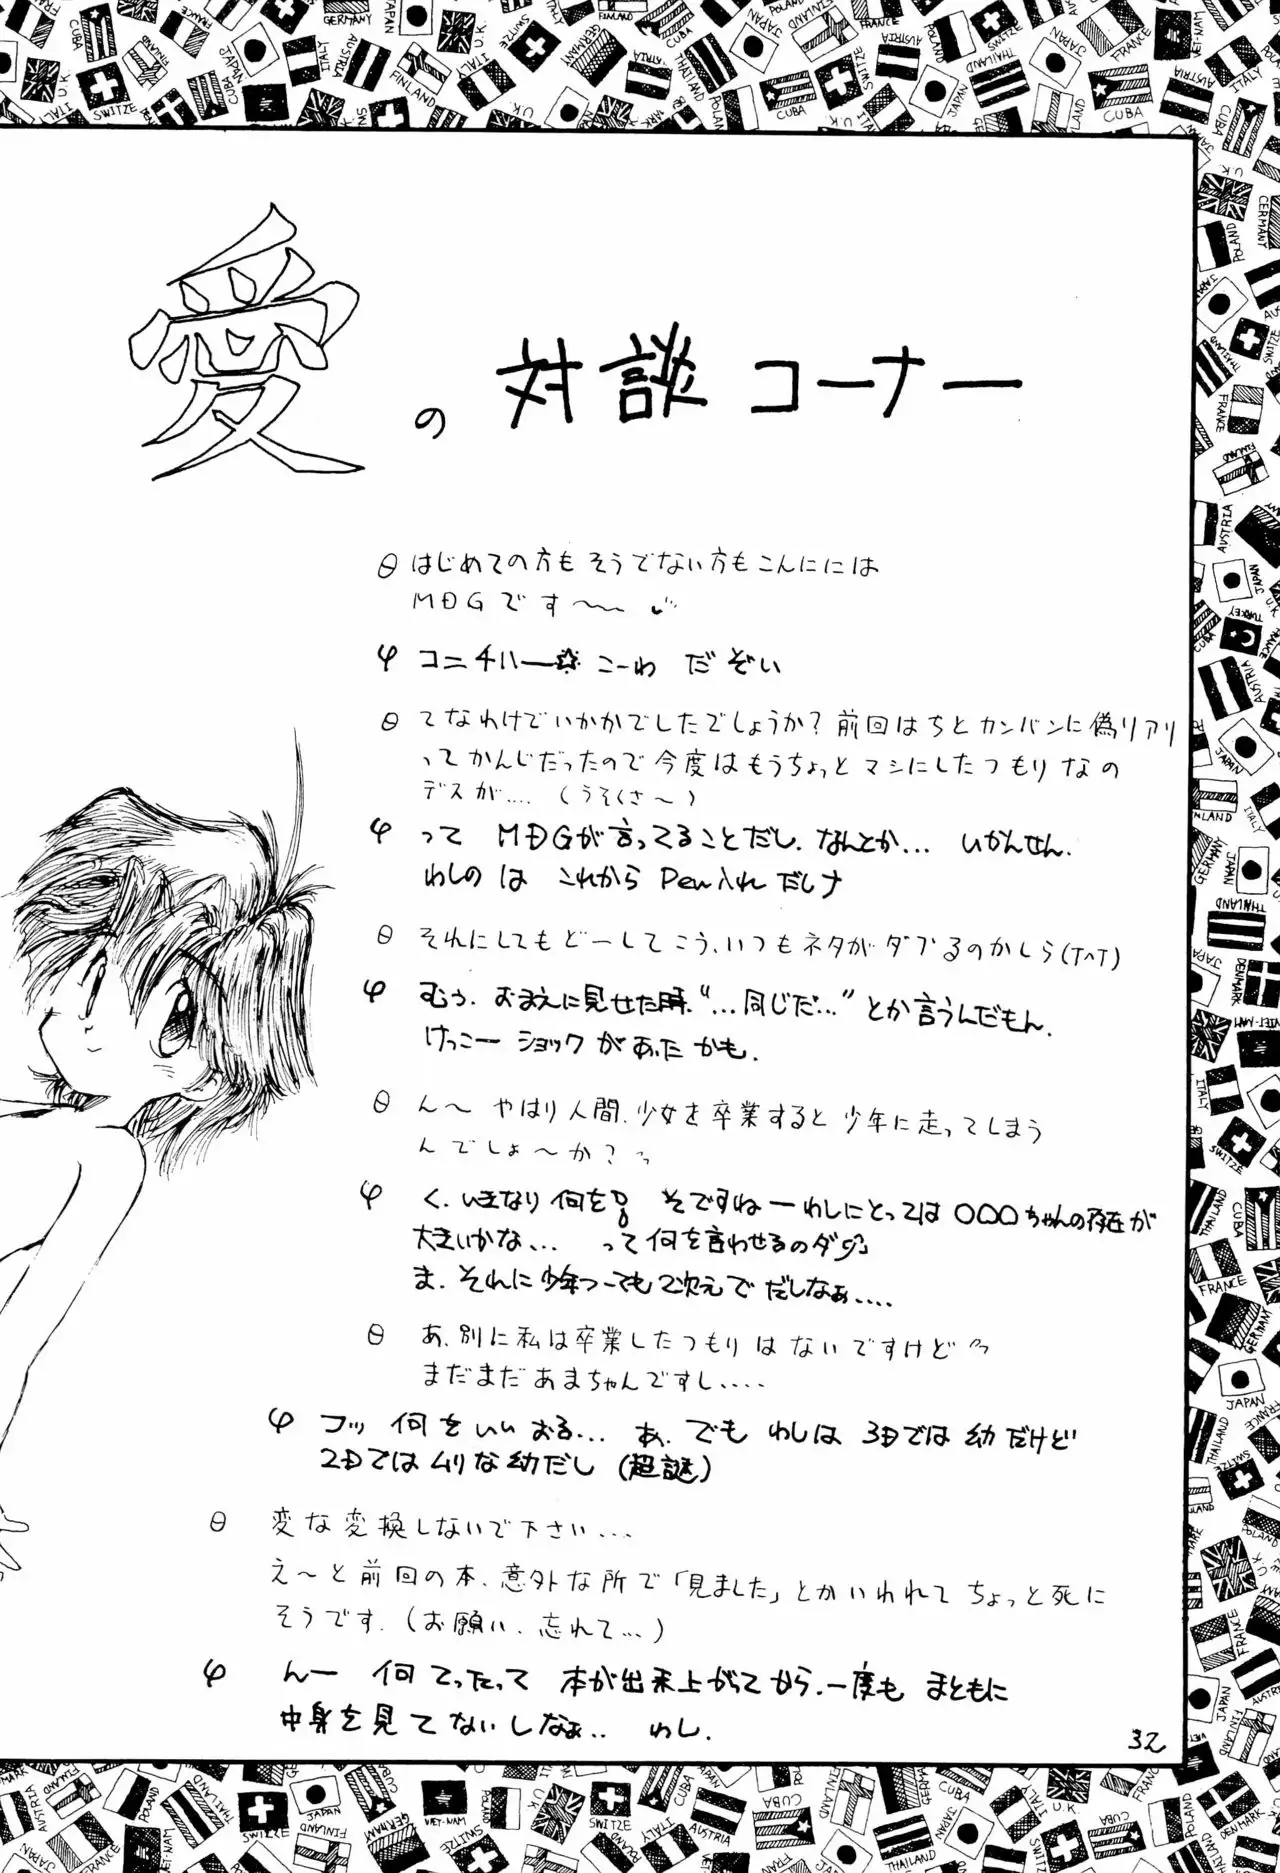 愛の対談コーナー
θ はじめての方もそうでない方もこんにには
MDGです〜
φ コニチハー☆ こーわ だぞい
θ てなわけでいかがでしたでしょうか？前回はちとカンバンに偽リアリ
ってかんじだったので今度はもうちょっとマシにしたつもりなの
デスが....（うそくさ〜）
φ って MDGが言ってることだし、なんとか... いかんせん、
わしのは これから Pen入れだしナ
θ それにしてもどーしてこう、いつもネタがダブるのかしら(T^T)
φ むぅ、おまえに見せた時、“...同じだ...”とか言うんだもん、
けっこー ショックがあったかも、
θ ん〜 やはり人間、少女を卒業すると少年に走ってしまう
んでしょ〜か？
φ く、いきなり何を! そですねーわしにとっては〇〇〇ちゃんの存在が
大きいかな... って何を言わせるのダ
ま、それに少年つーても2次元でだしなぁ....
θ あ、別に私は卒業したつもりはないですけど
まだまだあまちゃんですし....
φ フッ 何をいいおる... あ、でも わしは 3Dでは幼だけど
2Dではムリな幼だし（超謎）
θ 変な変換しないで下さい...
え〜と前回の本、意外な所で「見ました」とかいわれてちょっと死に
そうです.（お願い、忘れて...）
φ んー 何てったって 本が出来上がってから、一度も まともに
中身を見てないしなぁ.. わし.
32
GERMANY
CUBA
JAPAN
U.K.
ITALY
AUSTRIA
FINLAND
SWITZE
THAILAND
FRANCE
POLAND
VIET-NAM
TURKEY
DENMARK